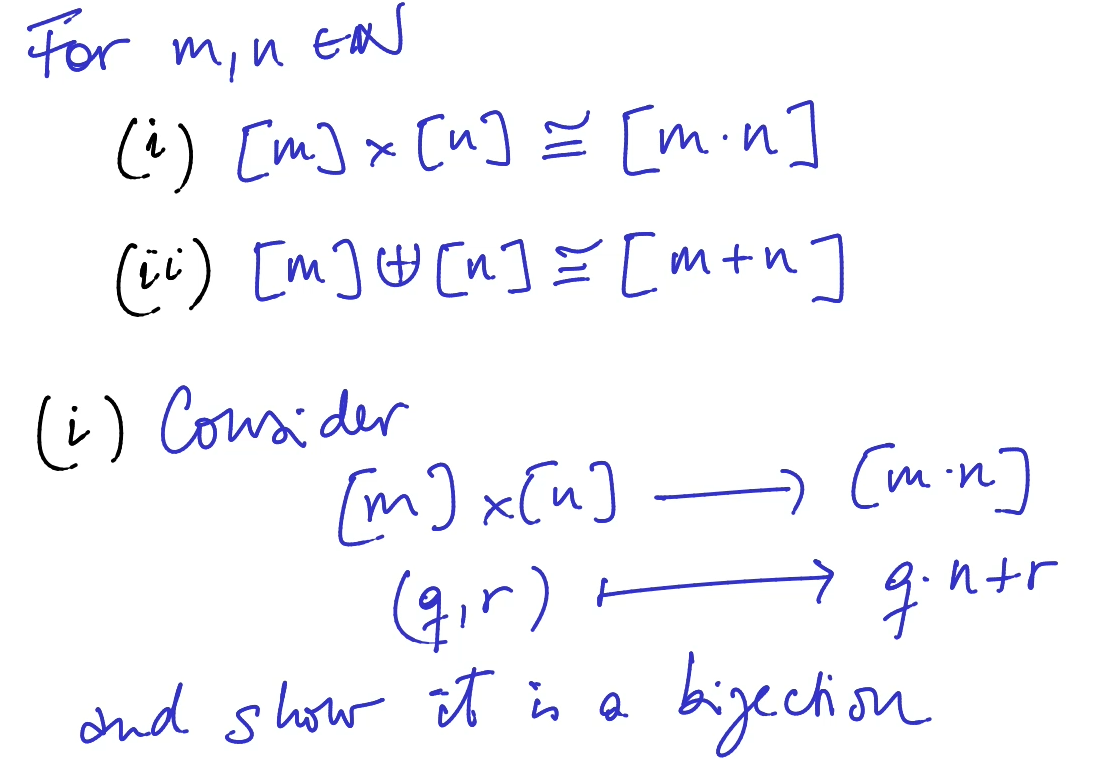 For m, n ∈ ℕ
(i) [m] × [n] ≅ [m · n]
(ii) [m] ⊎ [n] ≅ [m + n]
(i) Consider
[m] × [n] ⟶ [m · n]
(q, r) ⟼ q · n + r
and show it is a bijection